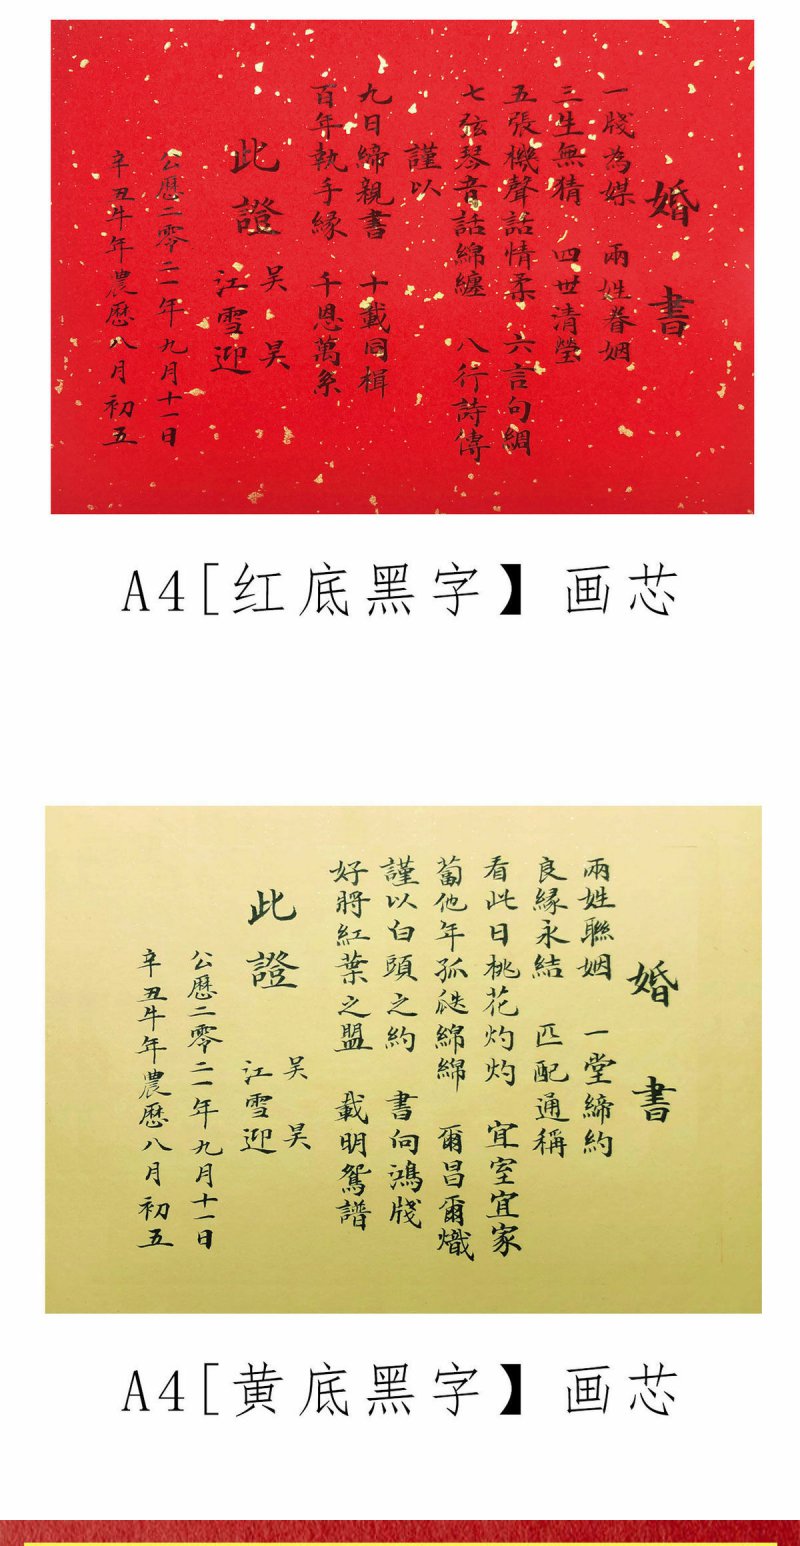 婚書
一牋為媒 兩姓眷姻
三生無猜 四世清瑩
五張機聲話情柔 六言句綢
七弦琴音話綿纏 八行詩傳
謹以
九日締親書 十載同楫
百年執手緣 千恩萬系
此證
吴昊
江雪迎
公曆二零二一年九月十一日
辛丑牛年農曆八月初五
A4[红底黑字】画芯
婚書
兩姓聯姻 一堂締約
良緣永結 匹配通稱
看此日桃花灼灼 宜室宜家
蔔他年孤瓞綿綿 爾昌爾熾
謹以白頭之約 書向鴻牋
好將紅葉之盟 載明鴛譜
此證
吴昊
江雪迎
公曆二零二一年九月十一日
辛丑牛年農曆八月初五
A4[黄底黑字】画芯